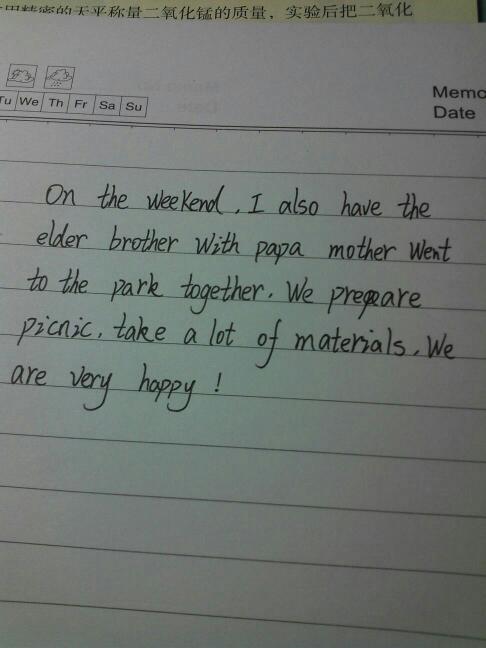 用精密的天平称量二氧化锰的质量，实验后把二氧化
Memo
Tu We Th Fr Sa Su
Date
On the weekend, I also have the
elder brother with papa mother went
to the park together. We prepare
picnic, take a lot of materials. We
are very happy !